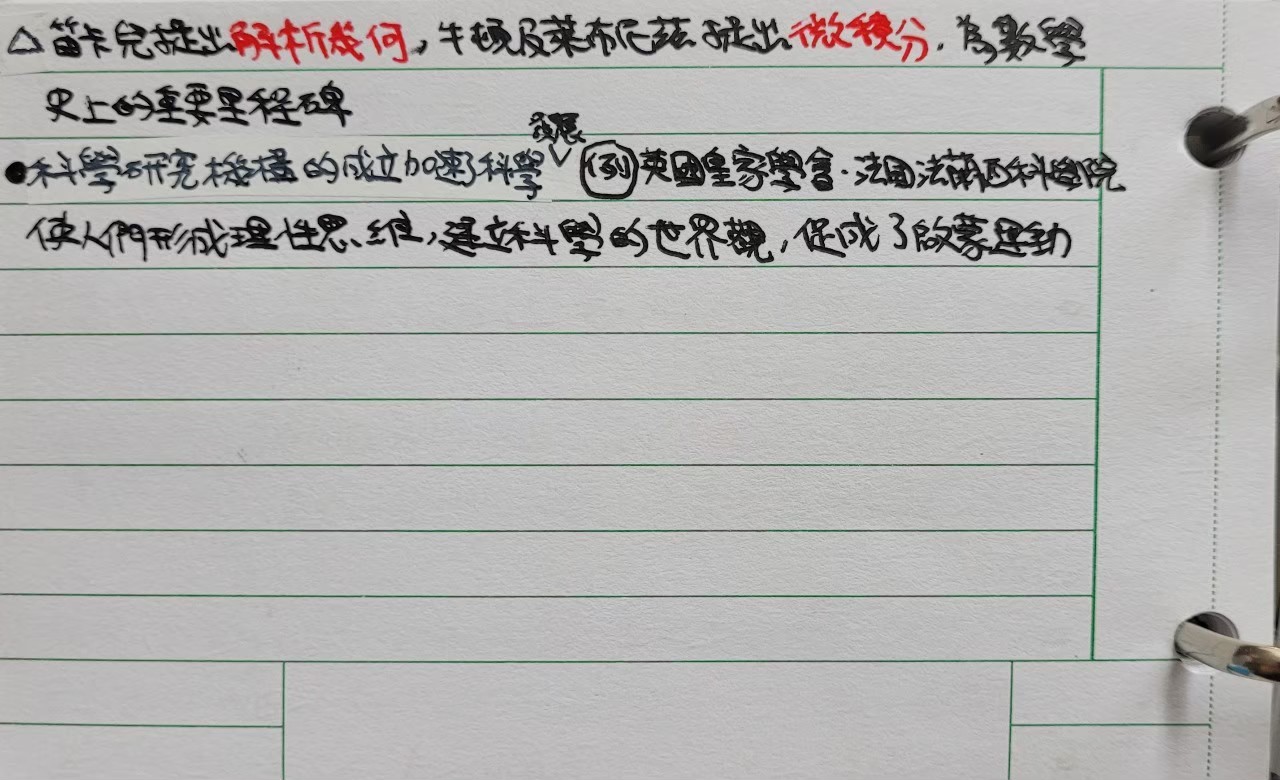 △笛卡兒提出解析幾何,牛頓及萊布尼茲提出微積分,為數學
史上的重要里程碑
發展
●科學研究機構的成立加速了科學∨ 例 英國皇家學會.法國法蘭西科學院
使人們形成理性思維,建立科學的世界觀,促成了啟蒙運動